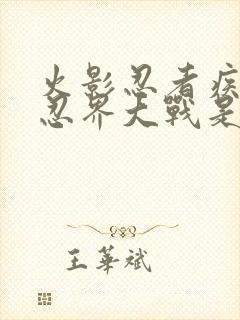 火影忍者疾
忍界大戰是
王華斌